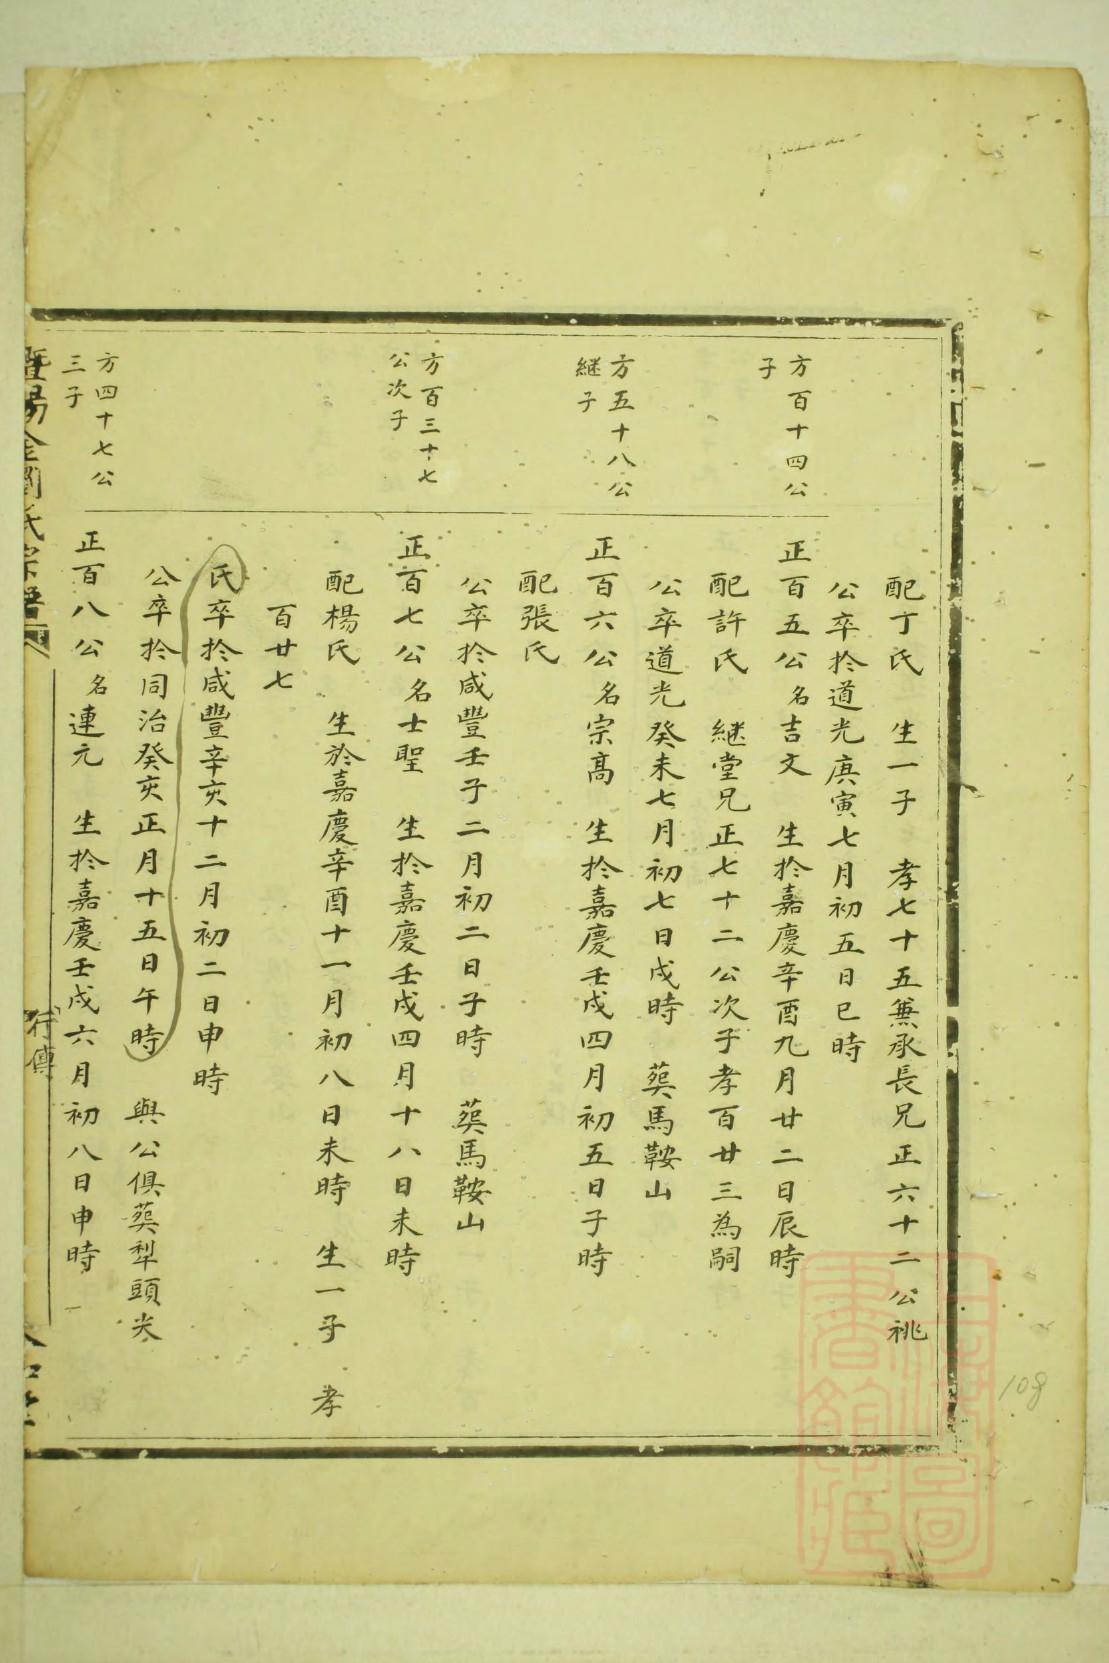 配丁氏　生一子　孝七十五兼承長兄正六十二公祧
公卒於道光庚寅七月初五日巳時
方百十四公
子
正百五公名吉文　生於嘉慶辛酉九月廿二日辰時
配許氏　継堂兄正七十二公次子孝百廿三為嗣
公卒道光癸未七月初七日戌時　葬馬鞍山
方五十八公
継子
正百六公名宗髙　生於嘉慶壬戌四月初五日子時
配張氏
公卒於咸豐壬子二月初二日子時　葬馬鞍山
方百三十七
公次子
正百七公名士聖　生於嘉慶壬戌四月十八日未時
配楊氏　生於嘉慶辛酉十一月初八日未時　生一子　孝
百廿七
氏卒於咸豐辛亥十二月初二日申時
公卒於同治癸亥正月十五日午時　與公俱葬犁頭尖
方四十七公
三子
正百八公名連元　生於嘉慶壬戌六月初八日申時
暨陽金劉氏宗譜
行傳
108
書館
圖